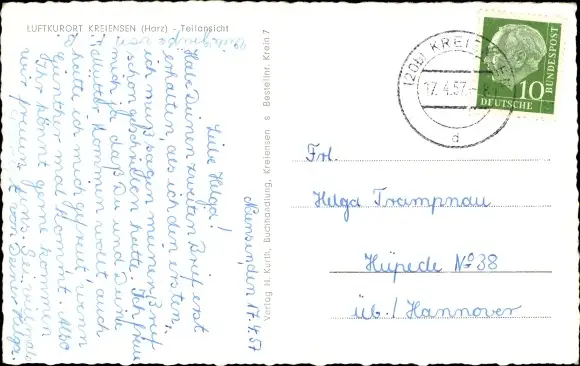 LUFTKURORT KREIENSEN (Harz) - Teilansicht
Naensen, den 17.4.57
Liebe Helga!
Habe Deinen zweiten Brief erst
erhalten, als ich den ersten,
ich muß sagen meinen Brief
schon geschrieben hatte. Ich freue
mich ja, daß Du und Deine
Mutter kommen wollt, auch
hätte ich mich gefreut, wenn
Günther mal kommt. Also
Ihr könnt gerne kommen
wir freuen uns. Sei vielmals
von Deiner Helga.
Verlag H. Kurth, Buchhandlung, Kreiensen s Bestellnr. Krein 7
(20b) KREIENSEN
17.4.57
d
10
DEUTSCHE BUNDESPOST
Frl.
Helga Trampnau
Hüpede No 38
üb./ Hannover